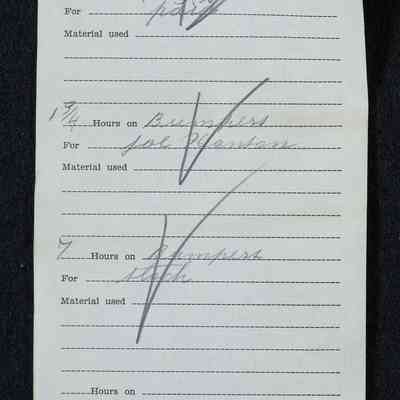 For paid
Material used
1 3/4 Hours on Bumpers
For Joe Hanson
Material used
7 Hours on Bumpers
For stock
Material used
Hours on